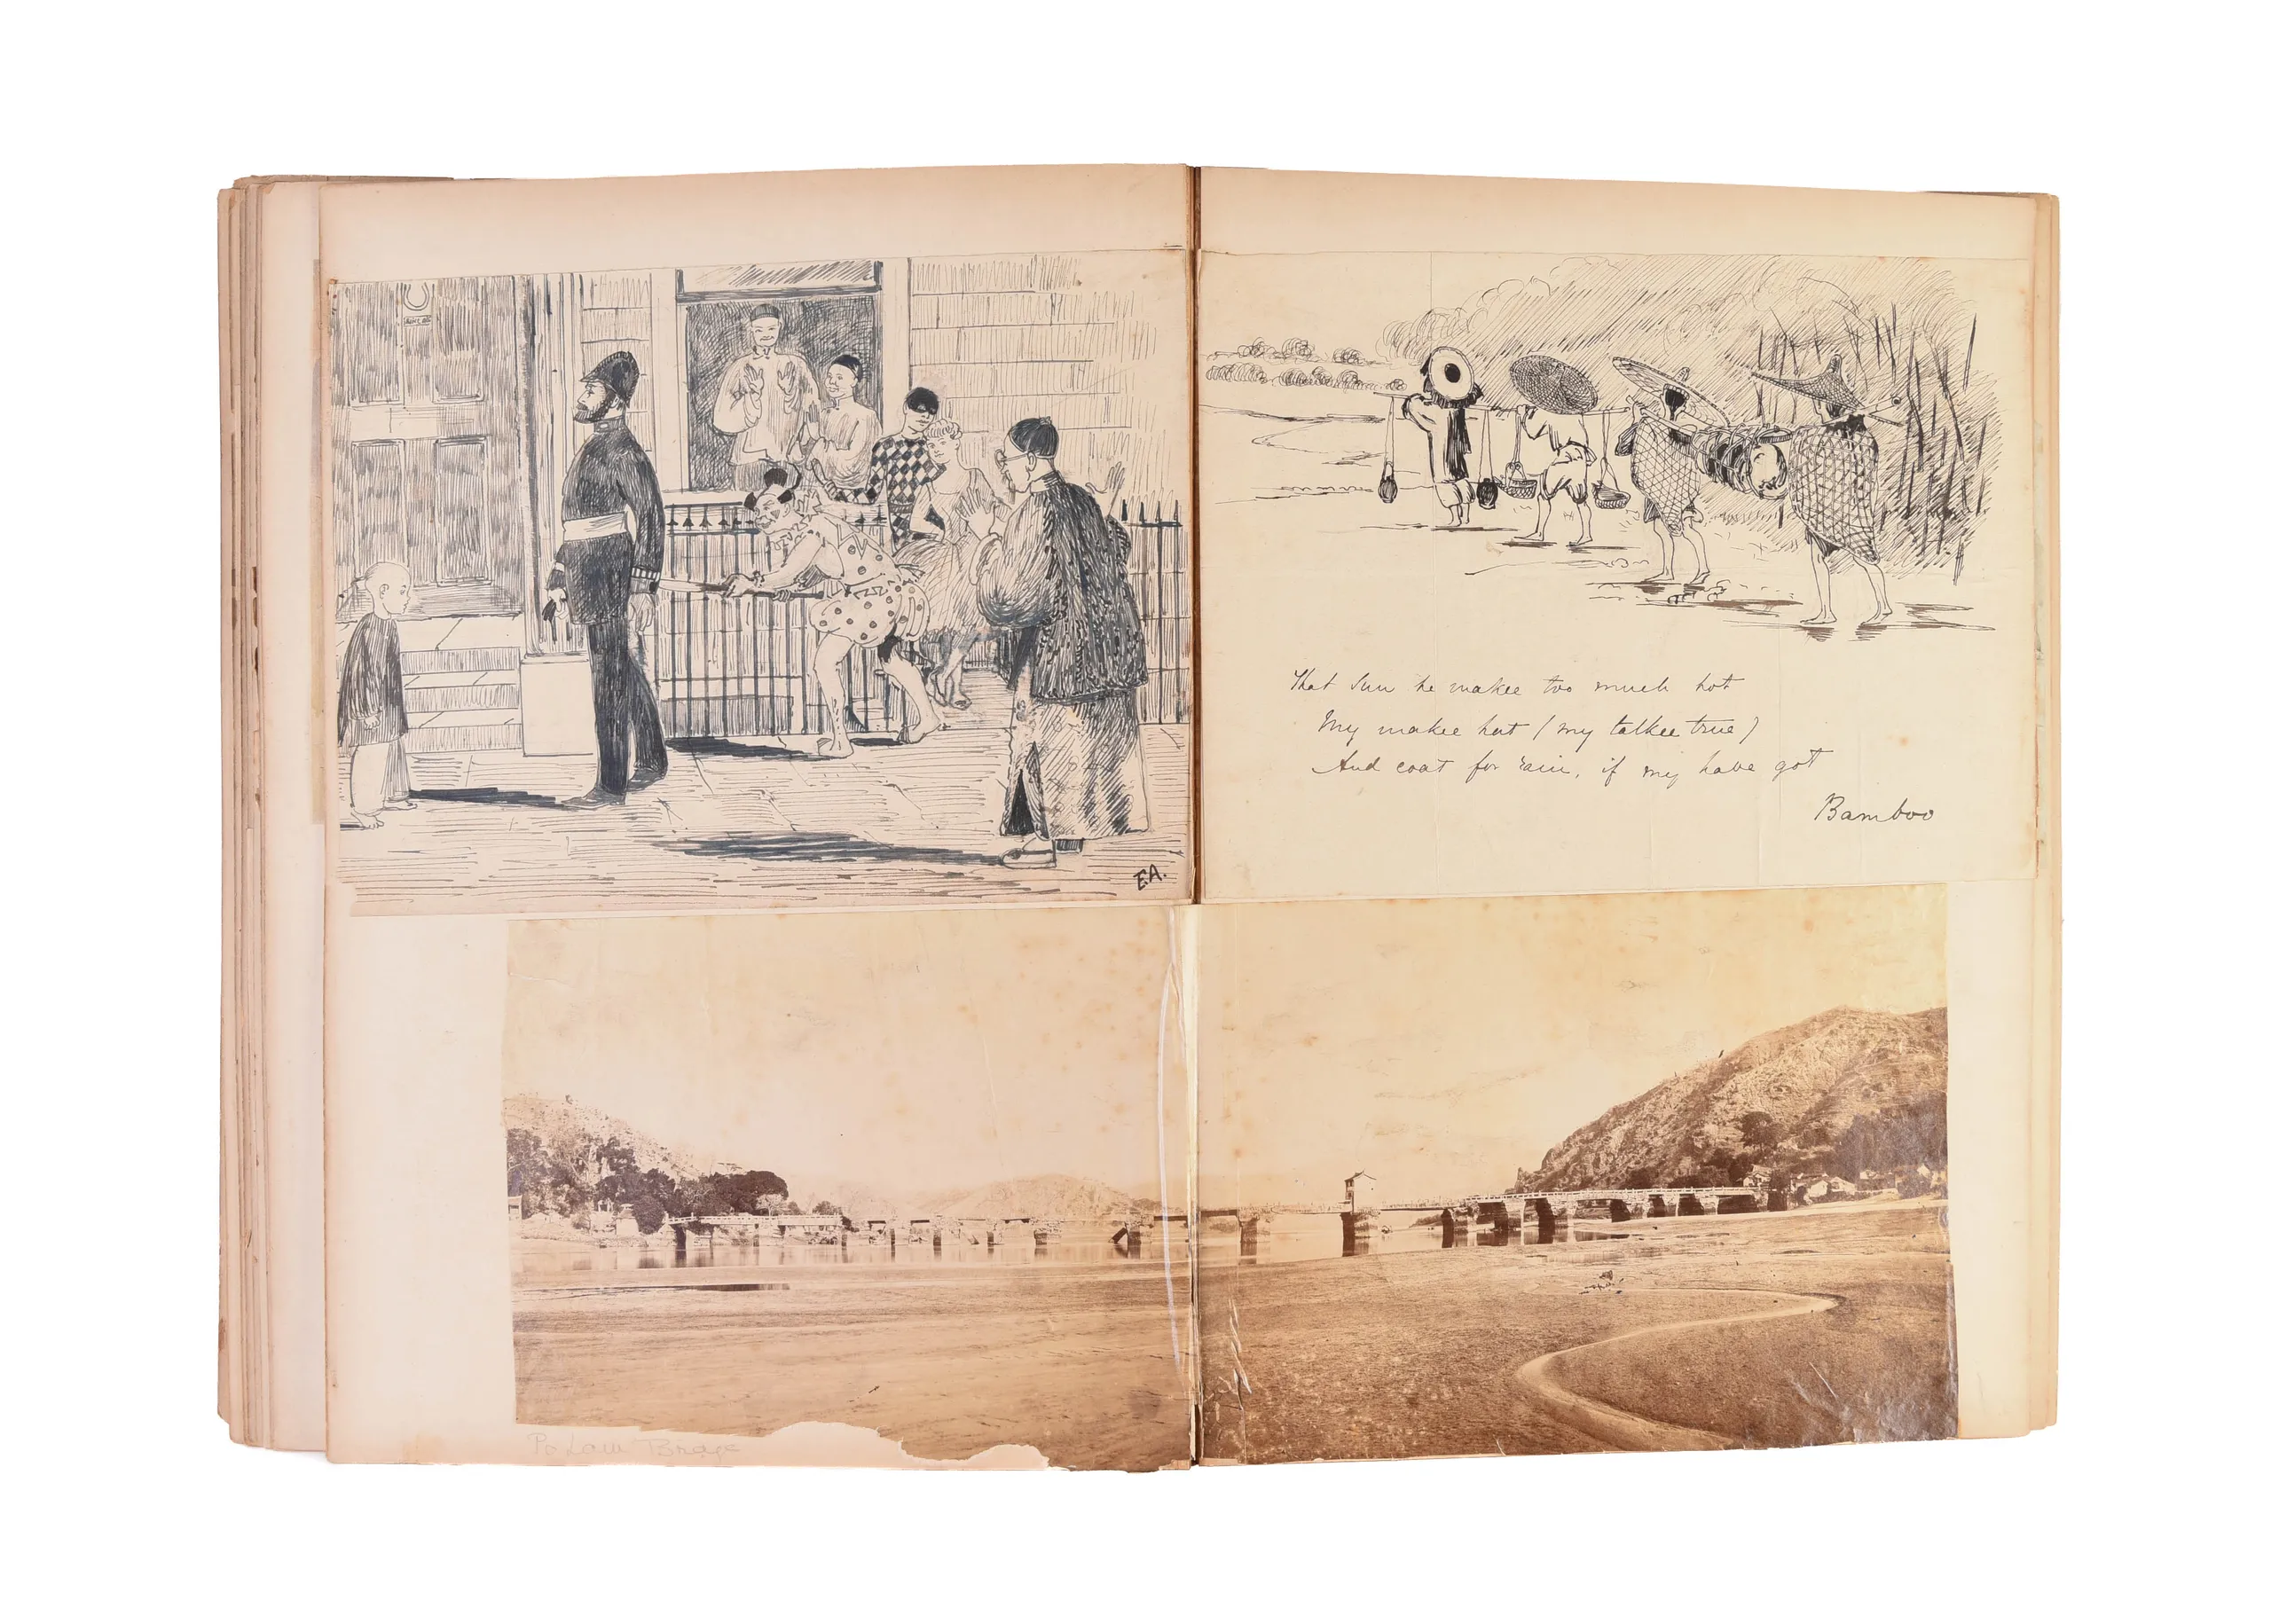 E.A.
That Sun he makee too much hot
My makee hat (my talkee true)
And coat for rain, if my have got
Bamboo
Po Lam Bridge